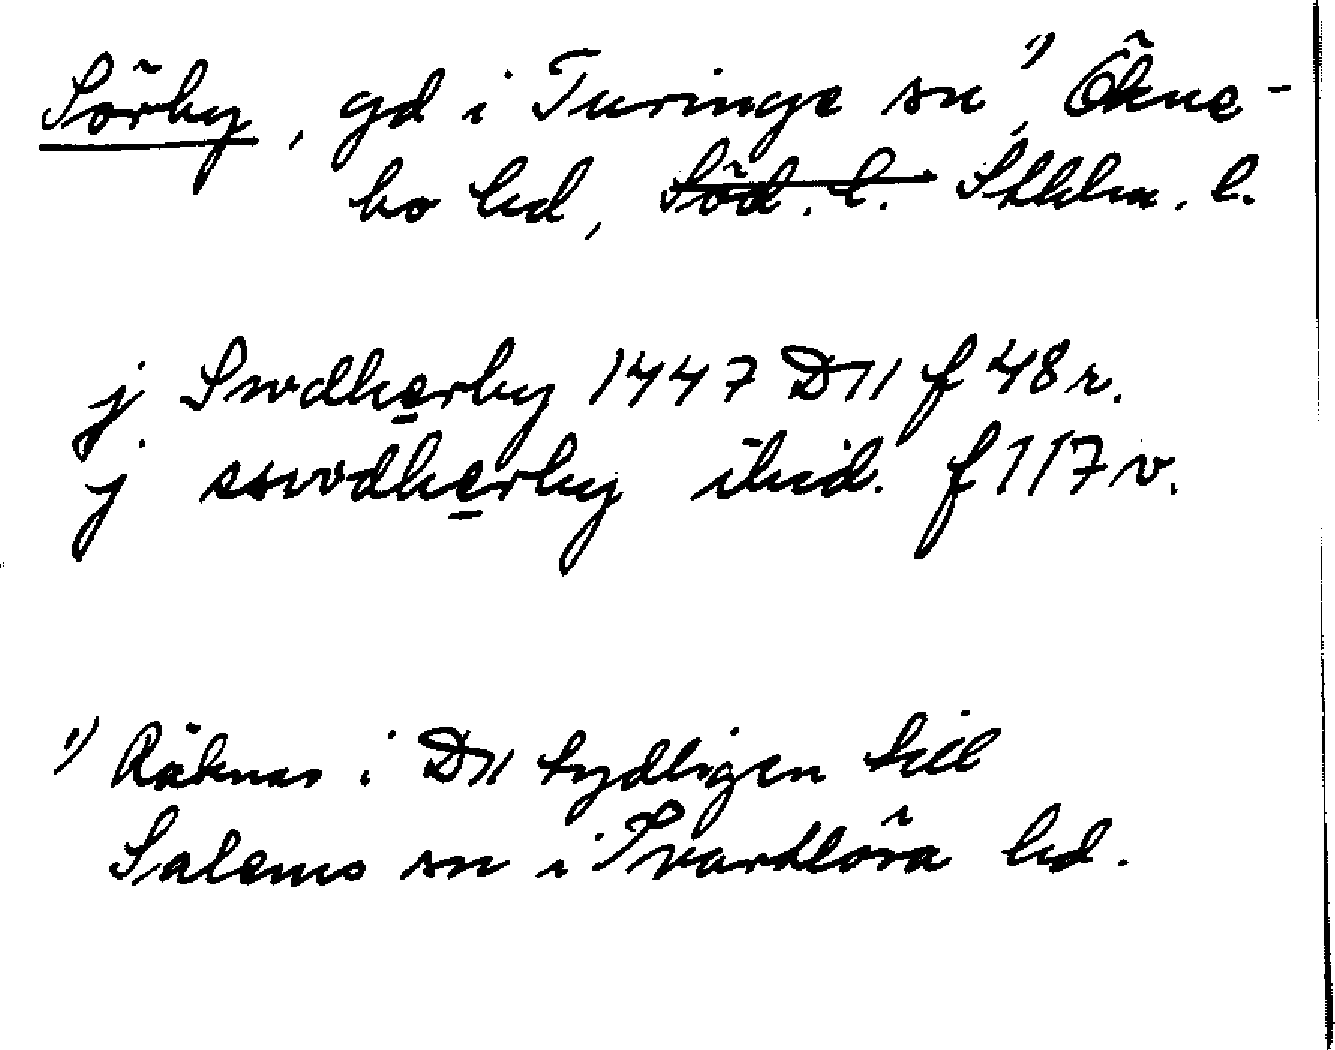 Sörby, gd i Turinge sn ¹⁾, Ökne-
bo hd, Söd. l. Sthlm. l.
j Swdherby 1447 D11 f 48 r.
j sswdherby ibid. f 117 v.
¹⁾ Räknas i D11 tydligen till
Salems sn i Svartlösa hd.